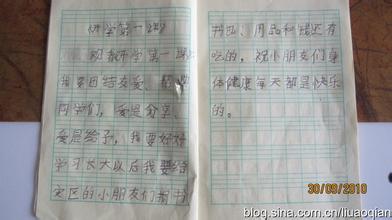 《开学第一课》
观看开学第一课
我要团结友爱、帮
同学们，爱是分享、
爱是给予，我要好好
学习长大以后我要给
灾区的小朋友们捐书
书包、用品和钱还有
吃的，祝小朋友们身
体健康每天都是快乐
的。
30/09/2010
blog.sina.com.cn/liuaoqian